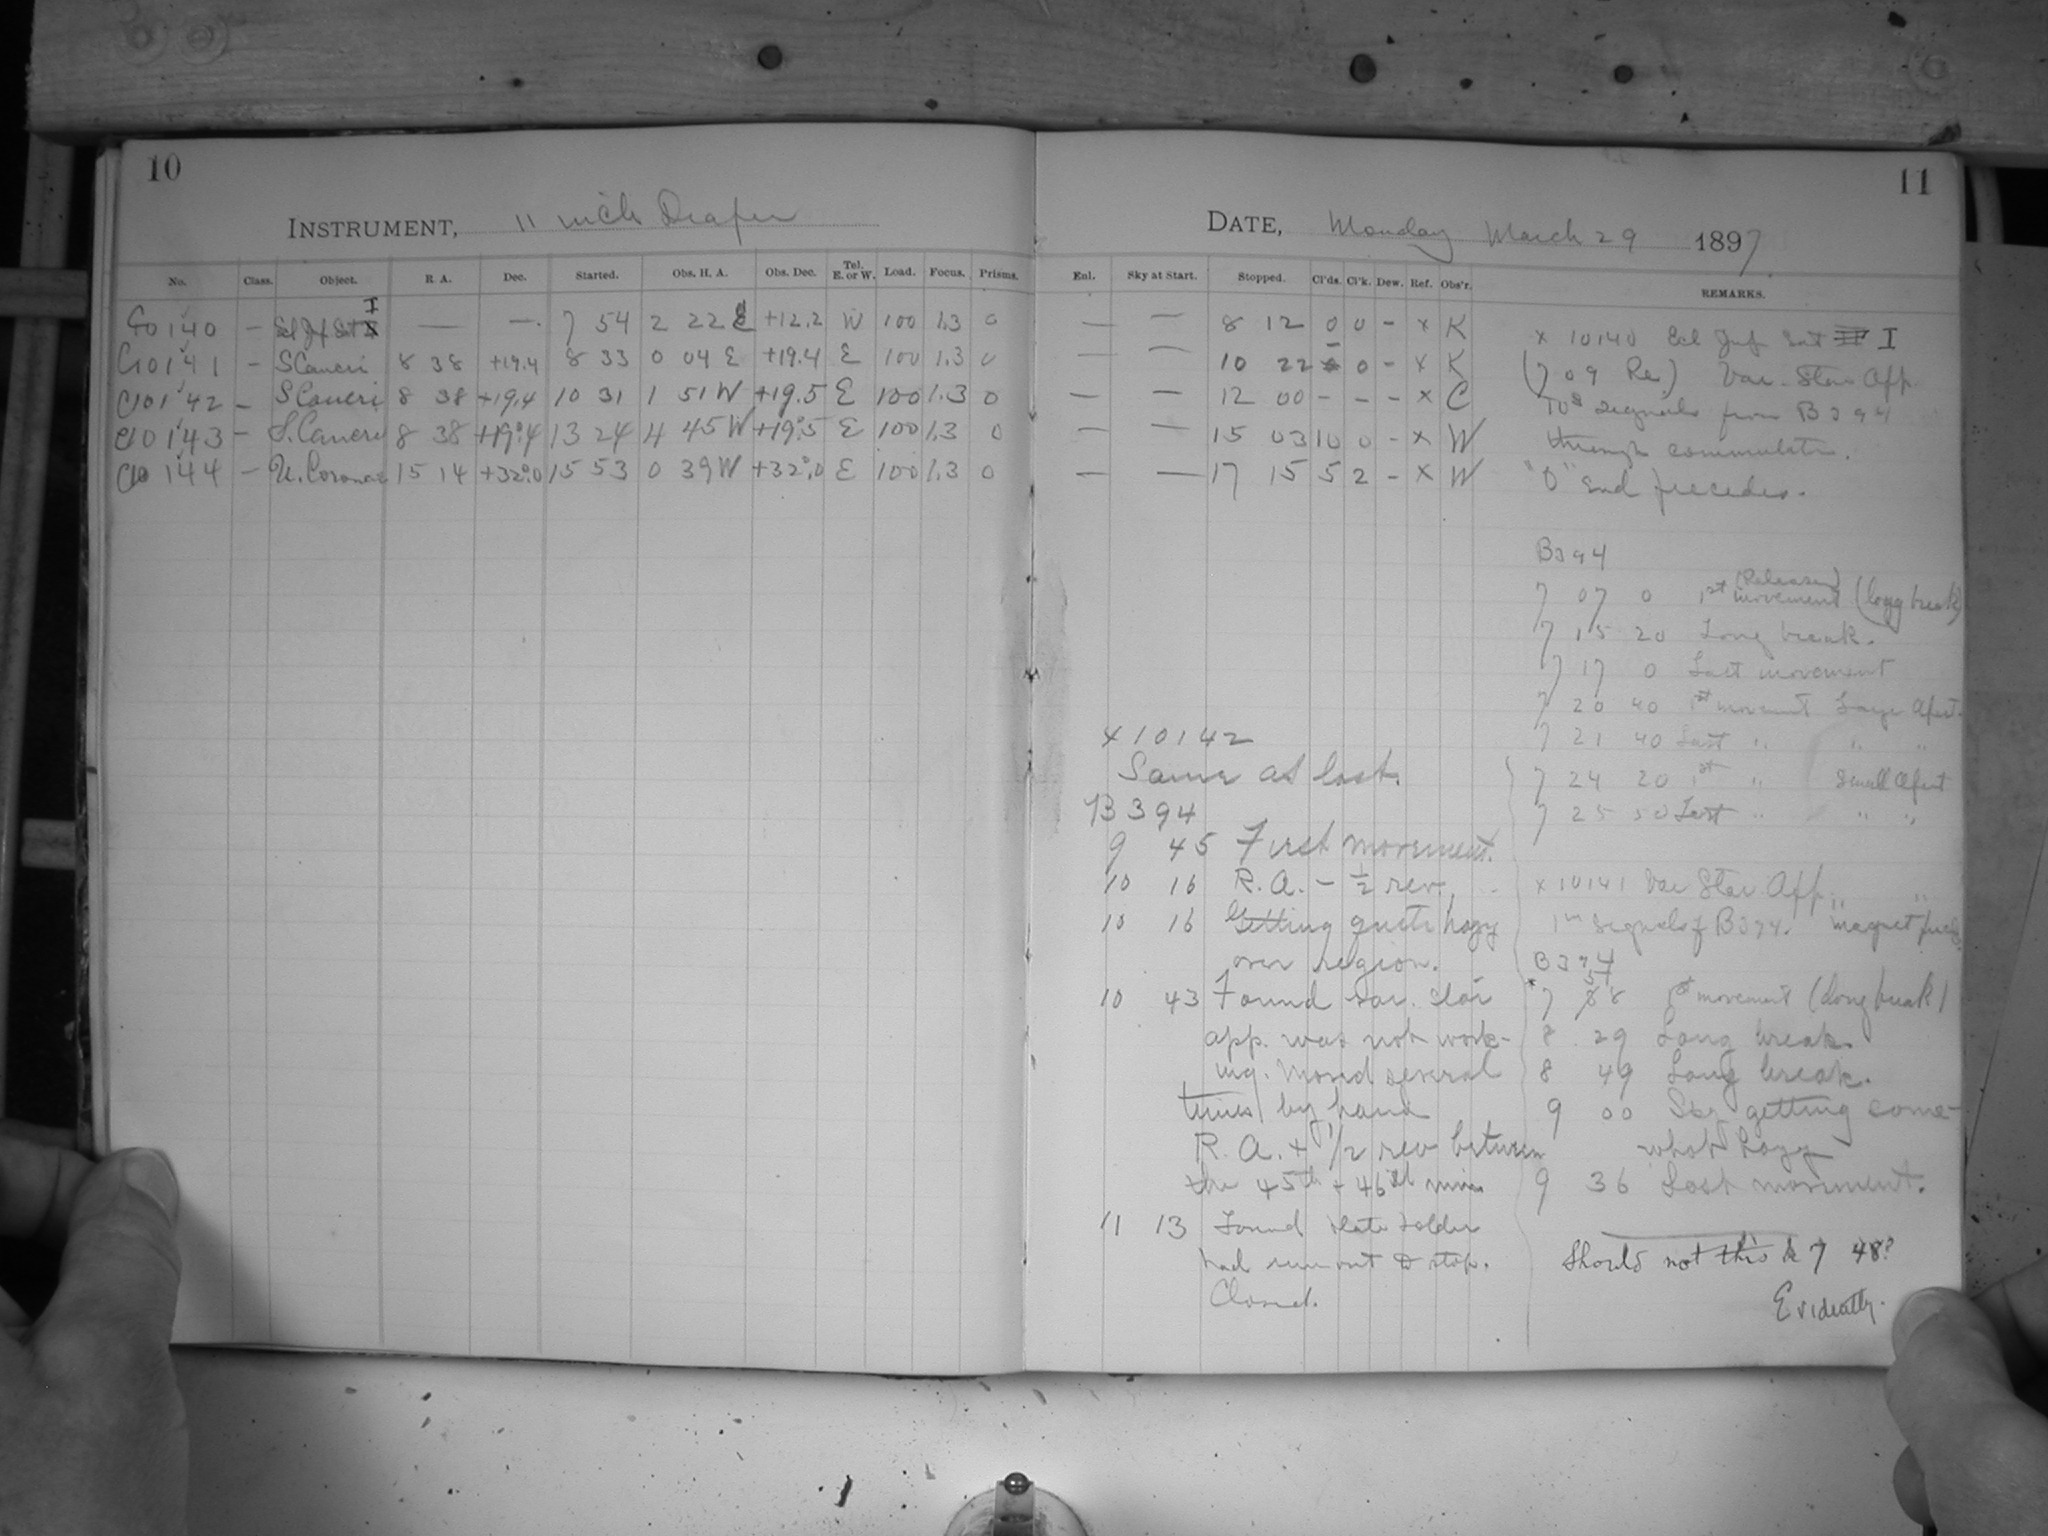 10
INSTRUMENT, 11 inch Draper
No. Class. Object. R. A. Dec. Started. Obs. H. A. Obs. Dec. Tel. E. or W. Load. Focus. Prisms.
I
10140 — Ecl Jup Sat — — 7 54 2 22 E +12.2 W 100 1.3 0
10141 — S Cancri 8 38 +19.4 8 33 0 04 E +19.4 E 100 1.3 0
10142 — S Cancri 8 38 +19.4 10 31 1 51 W +19.5 E 100 1.3 0
10143 — S. Cancri 8 38 +19°.4 13 24 4 45 W +19°.5 E 100 1.3 0
10144 — U. Coronae 15 14 +32°.0 15 53 0 39 W +32°.0 E 100 1.3 0
11
DATE, Monday March 29 1897
Enl. Sky at Start. Stopped. Cl'ds. Cl'k. Dew. Ref. Obs'r. REMARKS.
— — 8 12 0 0 - x K
— — 10 22 0 - x K
— — 12 00 - - - x C
— — 15 03 10 0 - x W
— — 17 15 5 2 - x W
x 10142
Same as last.
B 394
9 45 First movement.
10 16 R.A. - 1/2 rev.
10 16 Getting quite hazy
over region.
10 43 Found var. star
app. was not work-
ing. Moved several
times by hand
R. A. + 1/2 rev between
the 45th + 46th min
11 13 Found plate holder
had run out to stop.
Closed.
x 10140 Ecl Jup Sat I
(7 09 Re) Var. Star App.
10s signals from B394
through commutator.
"0" End precedes.
B394
7 07 0 1st (Release) movement (long break)
7 15 20 Long break.
7 17 0 Last movement
7 20 40 1st movement Large Apert.
7 21 40 Last " " "
7 24 20 1st " Small Apert
7 25 50 Last " " "
x 10141 Var Star App. " "
1m signals of B394. magnet
B394
* 7 movement (long break)
8 29 Long break.
8 49 Long break.
9 00 Sky getting some-
what hazy
9 36 Last movement.
Should not this be 7 48?
Evidently.